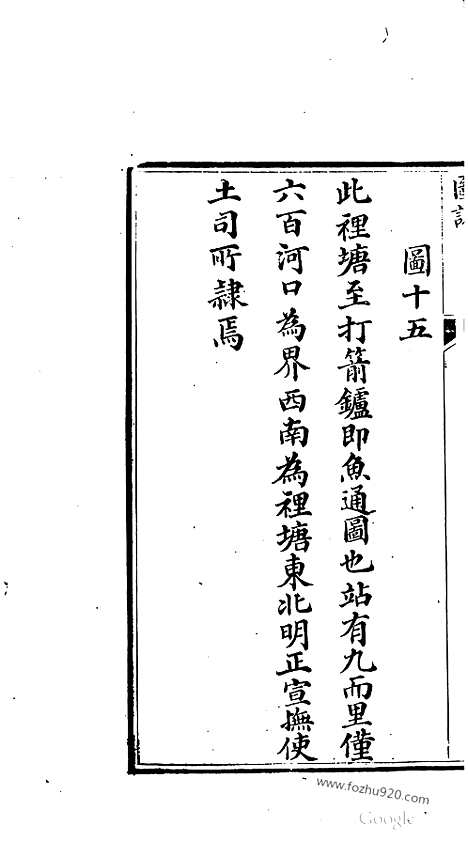 圖說
圖十五
此裡塘至打箭鑪即魚通圖也站有九而里僅
六百河口為界西南為裡塘東北明正宣撫使
土司所隸焉
www.fozhu920.com
Google